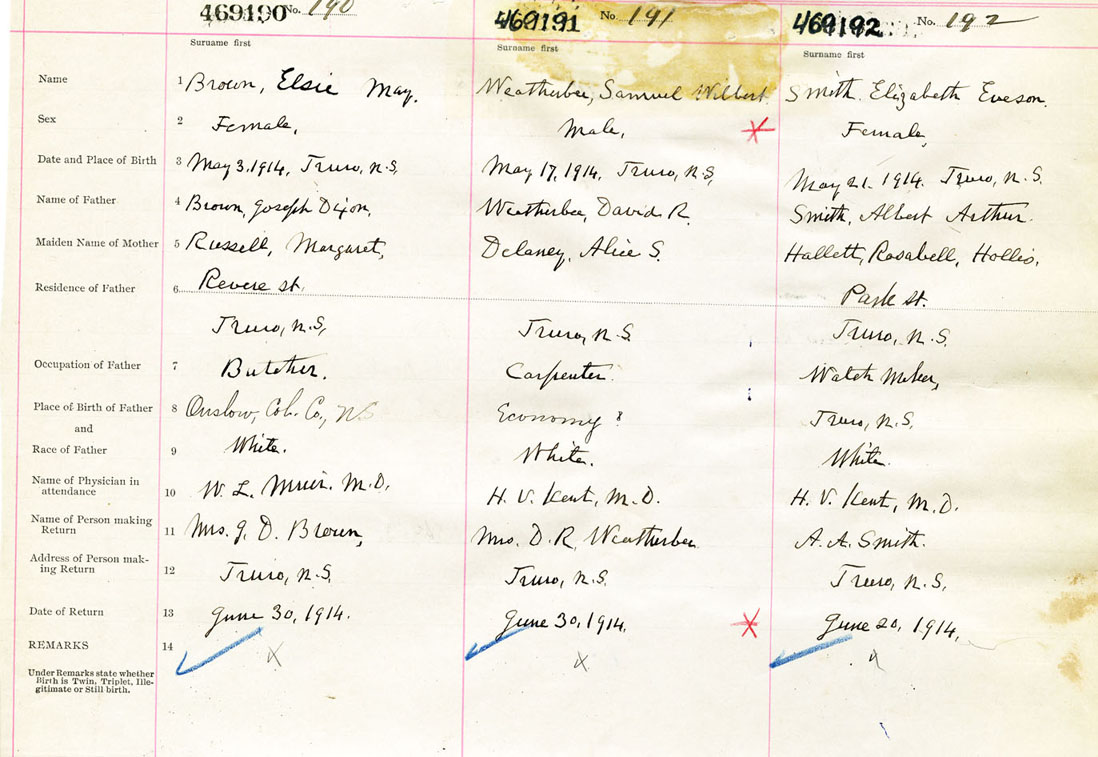 469190 No. 190 469191 No 191 469192 No. 192
Surname first Surname first Surname first
Name 1 Brown, Elsie May. Weatherbee, Samuel Wilbert. Smith. Elizabeth Eveson.
Sex 2 Female, Male, Female,
Date and Place of Birth 3 May 3, 1914, Truro, N.S, May 17, 1914, Truro, N.S, May 21. 1914. Truro, N.S.
Name of Father 4 Brown, Joseph Dixon, Weatherbee, David R. Smith, Albert Arthur.
Maiden Name of Mother 5 Russell, Margaret, Delaney, Alice S. Hallett, Rosabell, Hollis,
Residence of Father 6 Revere st. Park st.
Truro, N.S, Truro, N.S. Truro, N.S.
Occupation of Father 7 Butcher. Carpenter. Watch Maker,
Place of Birth of Father 8 Onslow, Col. Co., NS Economy ? Truro, N.S,
and
Race of Father 9 White. White. White.
Name of Physician in
attendance 10 W. L. Muir. M.D. H. V. Kent, M.D. H. V. Kent, M.D.
Name of Person making
Return 11 Mrs. J. D. Brown, Mrs. D. R. Weatherbee A. A. Smith.
Address of Person mak-
ing Return 12 Truro, N.S. Truro, N.S. Truro, N.S,
Date of Return 13 June 30, 1914. June 30, 1914. June 20, 1914,
REMARKS 14
Under Remarks state whether
Birth is Twin, Triplet, Ille-
gitimate or Still birth.